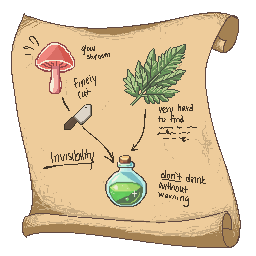 glow
shroom
finely
cut
very hard
to find
Invisibility
don't drink
without
warning